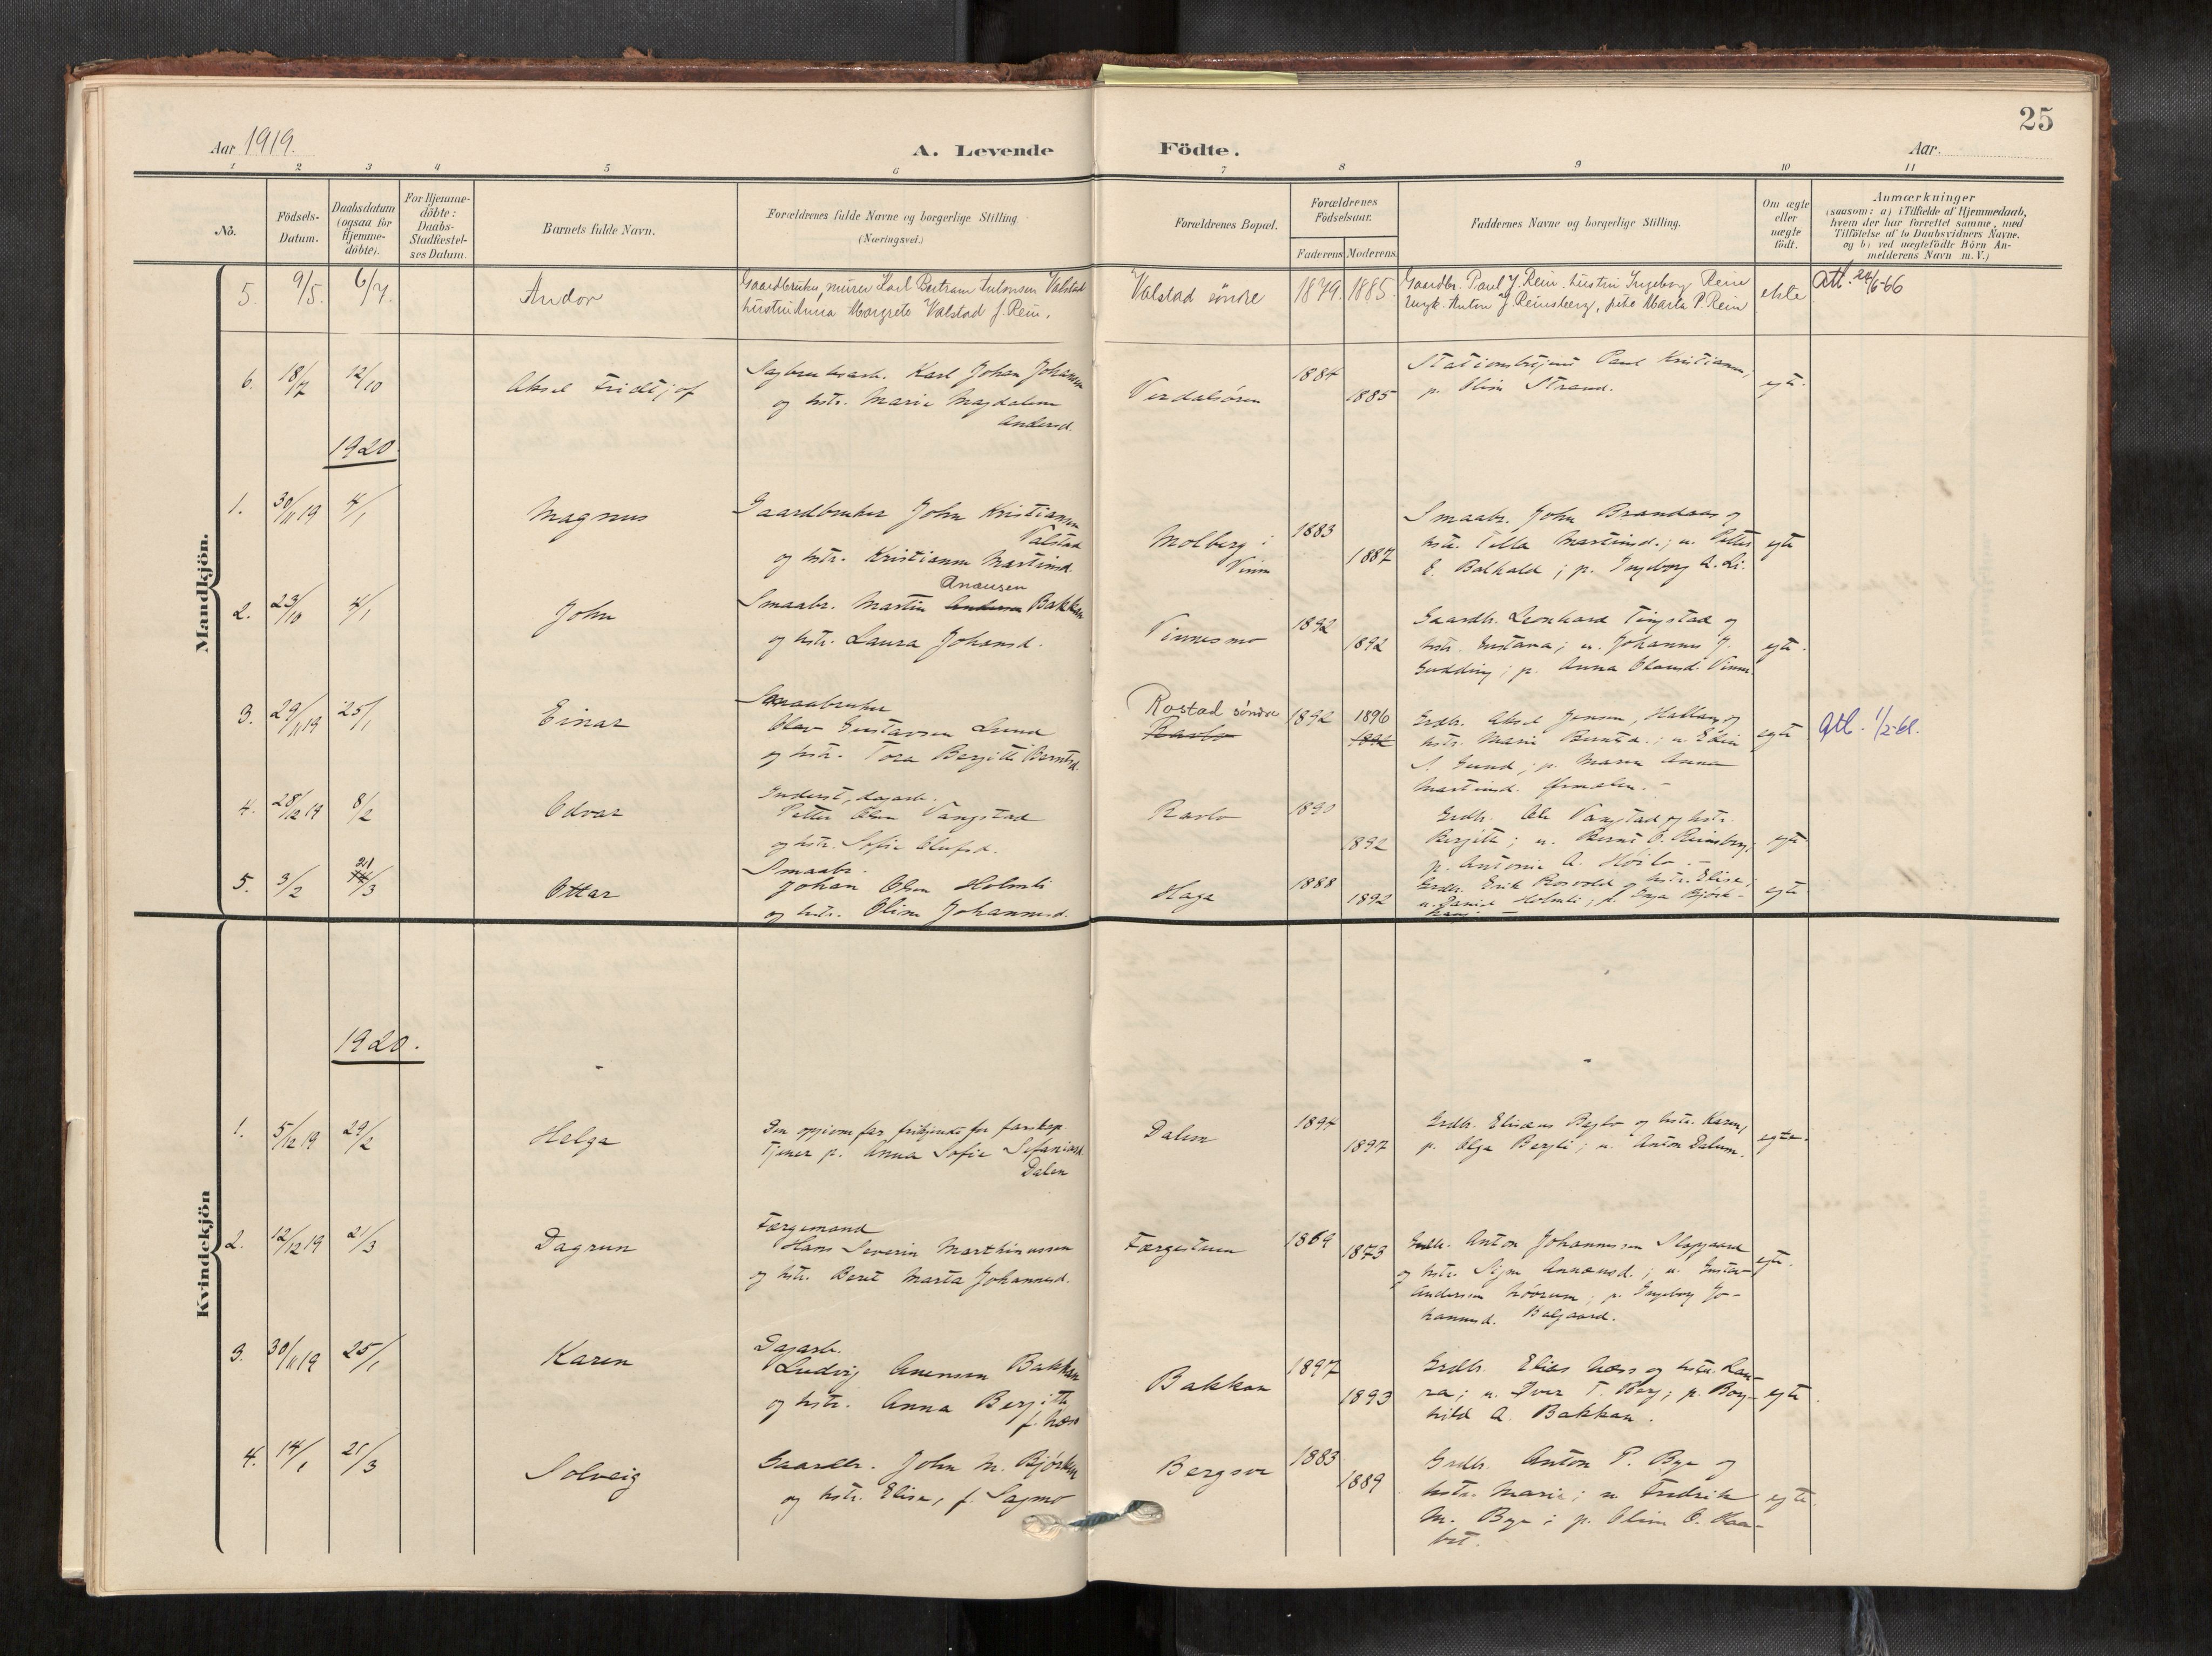 25
Aar 1919.
A. Levende Födte.
Aar.
1 2 3 4 5 6 7 8 9 10 11
No.
Födsels-
Datum.
Daabsdatum
(ogsaa for
Hjemme-
döbte).
For Hjemme-
döbte:
Daabs-
Stadfæstel-
ses Datum.
Barnets fulde Navn.
Forældrenes fulde Navne og borgerlige Stilling
(Næringsvei.)
Forældrenes Bopæl.
Forældrenes
Födselsaar.
Faderens Moderens
Faddernes Navne og borgerlige Stilling.
Om ægte
eller
uægte
födt.
Anmærkninger
(saasom: a) i Tilfælde af Hjemmedaab,
hvem der har forrettet samme, med
Tilföielse af to Daabsvidners Navne.
og b) ved uægtefödte Börn An-
melderens Navn m. V.)
Mandkjön.
5. 9/5. 6/7. Andor
Gaardbruker, murer Karl Bertram Antonsen Valstad
hustru Anna Margrete Valstad f. Rein.
Valstad söndre 1879. 1885.
Gaardbr. Paul J. Rein. hustru Ingeborg Rein
ungk. Anton J. Reinsberg, pike Marta P. Rein
ekte
Att. 24/6-66
6. 18/7 12/10 Aksel Fridtjof
Sagbruksarb. Karl Johan Johansen
og hstr. Marie Magdalene
Andersd.
Verdalsøren 1884 1885
Stationsbetjent Paul Kristiansen,
p. Oline Strand.
egte.
1920
1. 30/11 19 4/1 Magnus
Gaardbruker John Kristiansen
Valstad
og hstr. Kristianne Martinsd.
Molberg i
Vinne
1883 1887
Smaabr. John Brandaas og
hstr. Tella Martinsd.; u. Petter
E. Balhald; p. Ingeborg A. Li.
egte
2. 23/10 4/1 John
Anausen
Smaabr. Martin Andersen Bakkan
og hstr. Laura Johansd.
Vinnesmo 1892 1892
Gaardbr. Leonhard Tingstad og
hstr. Gustava; u. Johannes J.
Gudding; p. Anna Olausd. Vinne.
egte.
3. 29/11 19 25/1 Einar
Smaabruker
Olav Gustavsen Lund
og hstr. Tora Bergitte Berntsd.
Rostad söndre
Ravlo
1892 1896
1892
Grdbr. Aksel Jensen, Hallan og
hstr. Marie Berntsd.; u. Edin
A. Lund; p. Maren Anna
Martinsd. Ørmelen. –
egte
Att. 1/2-61.
4. 28/12 19 8/2 Odvar
Inderst, dagarb.
Petter Olsen Vangstad
og hstr. Sofie Olufsd.
Ravlo 1890 1892
Grdbr. Ole Vangstad og hstr.
Bergitte; u. Bernt O. Reinsberg;
p. Antonie A. Høilo. –
egte
5. 3/2 21/3 Ottar
Smaabr.
Johan Olsen Holmli
og hstr. Oline Johannesd.
Haga 1888 1892
Grdbr. Erik Rosvold og hstr. Elise;
u. Daniel Holmli; p. Inga Bjørk-
haug. –
egte
Kvindekjön
1920.
1. 5/12 19 29/2 Helga
Den opgivne far frikjendt for farskap.
Tjener p. Anna Sofie Stefaniasd.
Dalen
Dalen 1894 1897
Grdbr. Eliseus Berglo og hstr. Karen,
p. Olga Bergli; u. Anton Dalum.
egte.
2. 12/12 19 21/3 Dagrun
Færgemand
Hans Severin Marthinussen
og hstr. Beret Marta Johannesd.
Færgestuen 1869 1873
Grdbr. Anton Johannessen Slapgaard
og hstr. Signe Annæusd.; u. Gustav
Andersen; p. Ingeborg Jo-
hannesd. Balgaard.
egte.
3. 30/11 19 25/1 Karen
Dagarb.
Ludvig Anensen Bakkan
og hstr. Anna Bergitte
f. Næss
Bakkan 1897 1893
Grdbr. Elias Næss og hstr. Lau-
ra; u. Iver T. Berg; p. Borg-
hild A. Bakkan.
egte
4. 14/1 21/3 Solveig
Gaardbr. John M. Bjørken
og hstr. Elise, f. Sagmo
Bergsve 1883 1889
Grdbr. Anton P. Bye og
hstr. Marie; u. Fredrik
M. Bye; p. Oline O.
egte.